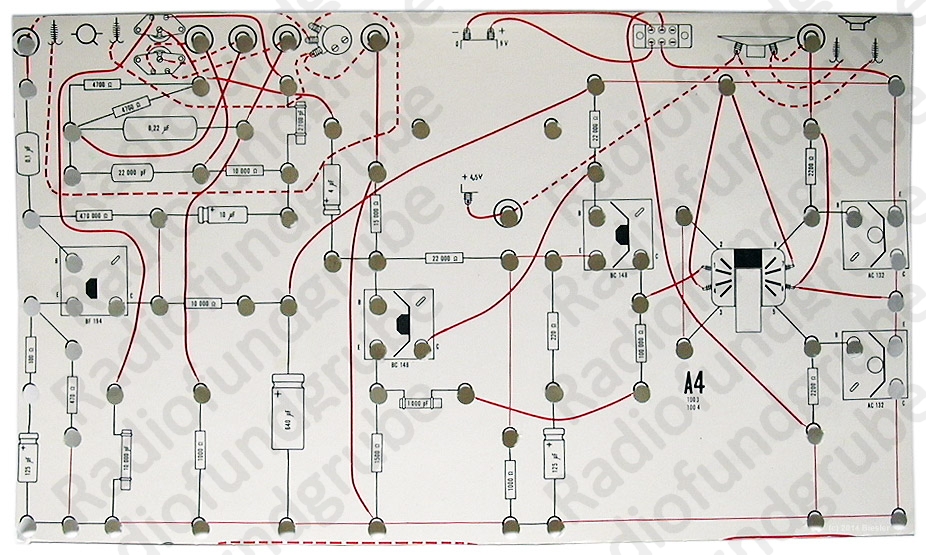 - +
0 9V
4700 Ω
4700 Ω
0,22 µF
2200 pF
22 000 Ω
22 000 pF
10 000 Ω
4 µF
+ 4,5V
2200 Ω
0,1 µF
470 000 Ω
10 µF
15 000 Ω
B
C
E
BF 194
22 000 Ω
B
E
C
BC 148
B
E
C
AC 132
10 000 Ω
B
E
C
BC 148
220 Ω
100 000 Ω
2
3
5
B
E
C
AC 132
100 Ω
470 Ω
A4
1003
1004
1 000 pF
2200 Ω
640 µF
125 µF
10,000 pF
1000 Ω
1500 Ω
1000 Ω
125 µF
Radiofundgrube